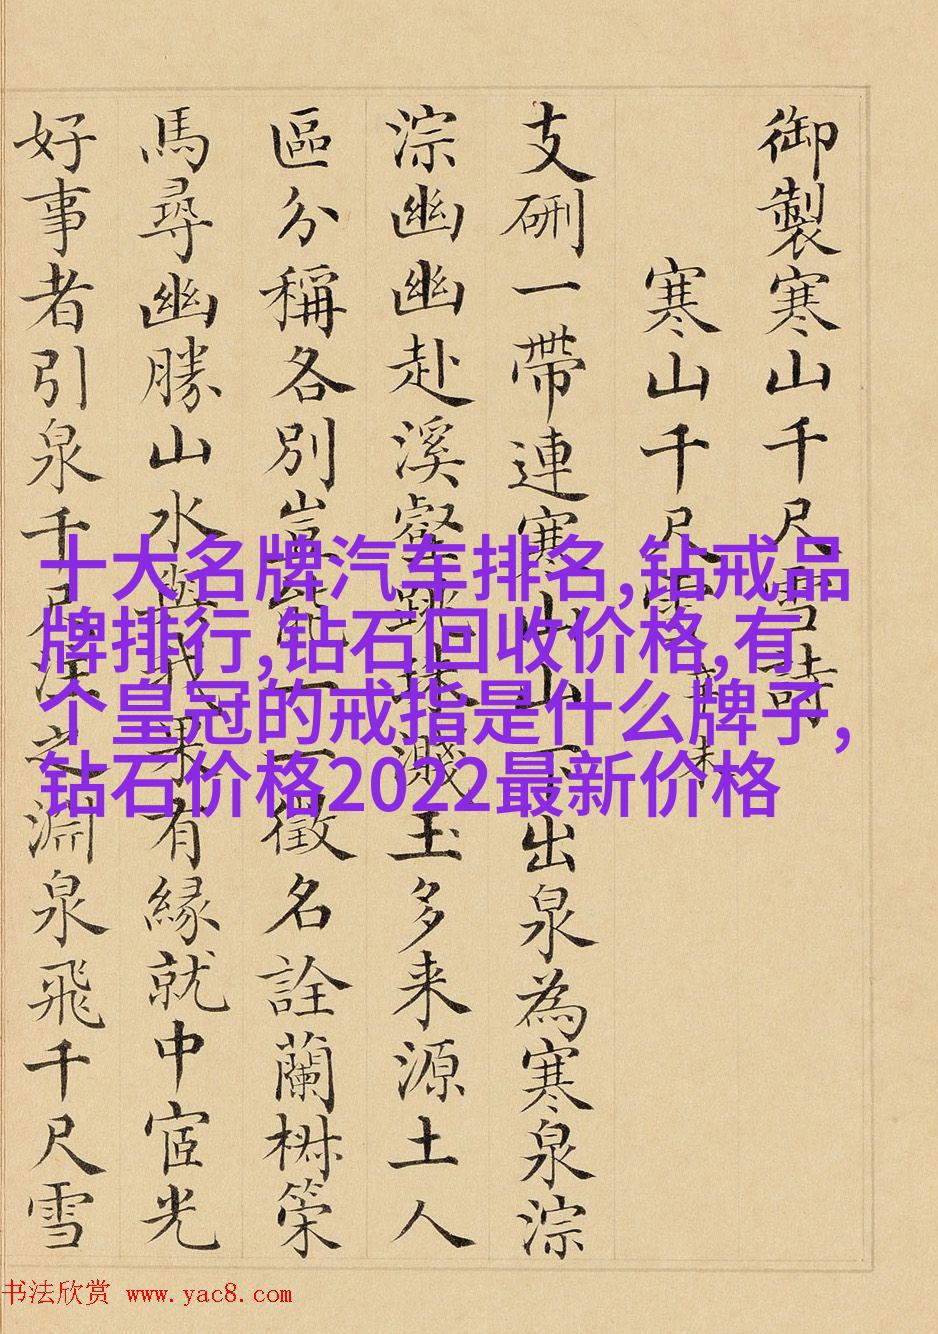 御製寒山千尺雪詩
寒山千尺雪 辛未
支硎一帶連寒山山下出泉為寒泉淙
淙幽幽赴溪壑跳珠濺玉多来源土人
區分稱各別豈能一一徵名詮蘭策
馬尋幽勝山水我果有緣就中宧光
好事者引泉千尺注之淵泉飛千尺雪
十大名牌汽车排名,钻戒品
牌排行,钻石回收价格,有
个皇冠的戒指是什么牌子,
钻石价格2022最新价格
书法欣赏 www.yac8.com